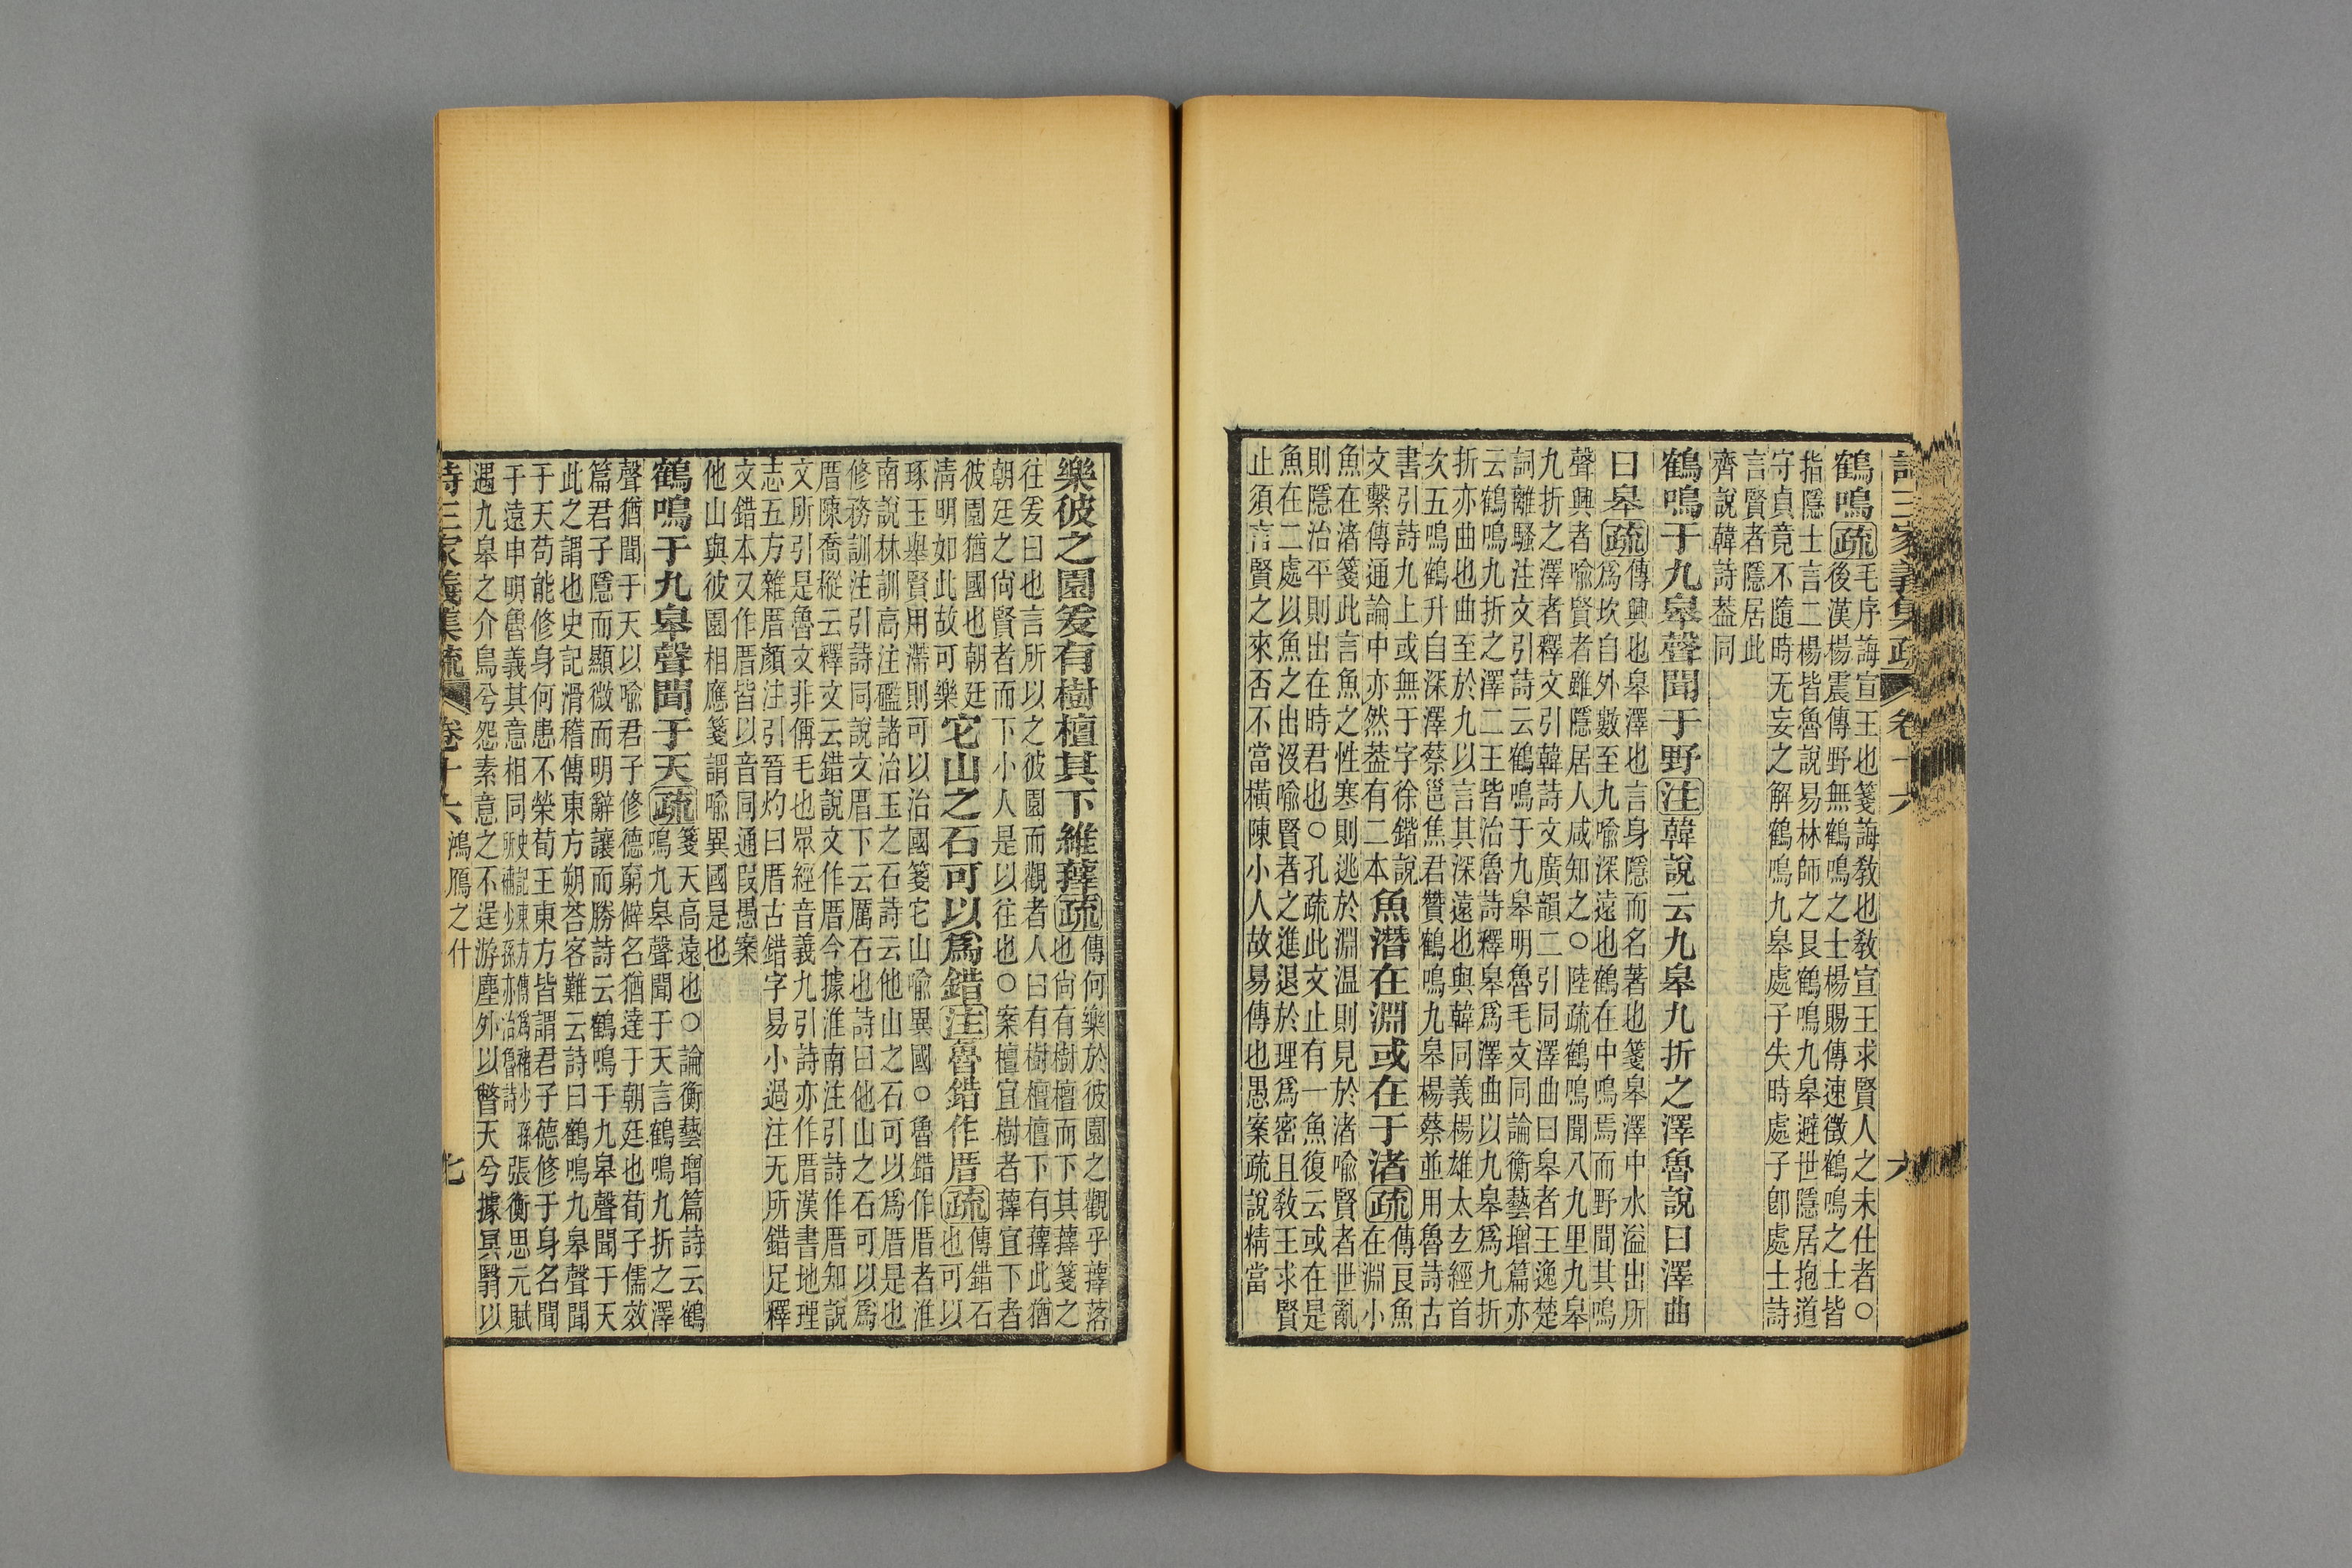 詩三家義集疏 卷十六 六
鶴鳴疏毛序誨宣王也箋誨教也教宣王求賢人之未仕者○
後漢楊震傳野無鶴鳴之士楊賜傳速徵鶴鳴之士皆
指隱士言二楊皆魯說易林師之艮鶴鳴九皋避世隱居抱道
守貞竟不隨時无妄之解鶴鳴九皋處子失時處子卽處士詩
言賢者隱居此
齊說韓詩葢同
鶴鳴于九皋聲聞于野注韓說云九皋九折之澤魯說曰澤曲
曰皋疏傳興也皋澤也言身隱而名著也箋皋澤中水溢出所
爲坎自外數至九喻深遠也鶴在中鳴焉而野聞其鳴
聲興者喻賢者雖隱居人咸知之○陸疏鶴鳴聞八九里九皋
九折之澤者釋文引韓詩文廣韻二引同澤曲曰皋者王逸楚
詞離騷注文引詩云鶴鳴于九皋明魯毛文同論衡藝增篇亦
云鶴鳴九折之澤二王皆治魯詩釋皋爲澤曲以九皋爲九折
折亦曲也曲至於九以言其深遠也與韓同義楊雄太玄經首
次五鳴鶴升自深澤蔡邕焦君贊鶴鳴九皋楊蔡並用魯詩古
書引詩九上或無于字徐鍇說
文繫傳通論中亦然葢有二本
魚潛在淵或在于渚疏傳良魚
在淵小
魚在渚箋此言魚之性寒則逃於淵温則見於渚喻賢者世亂
則隱治平則出在時君也○孔疏此文止有一魚復云或在是
魚在二處以魚之出沒喻賢者之進退於理爲密且敎王求賢
止須言賢之來否不當橫陳小人故易傳也愚案疏說精當
樂彼之園爰有樹檀其下維蘀疏傳何樂於彼園之觀乎蘀落
也尙有樹檀而下其蘀箋之
往爰曰也言所以之彼園而觀者人曰有樹檀檀下有蘀此猶
朝廷之尙賢者而下小人是以往也○案檀宜樹者蘀宜下者
彼園猶國也朝廷
淸明如此故可樂
它山之石可以爲錯注魯錯作厝疏傳錯石
也可以
琢玉舉賢用滯則可以治國箋它山喻異國○魯錯作厝者淮
南說林訓高注礛諸治玉之石詩云他山之石可以爲厝是也
修務訓注引詩同說文厝下云厲石也詩曰他山之石可以爲
厝陳喬樅云釋文云錯說文作厝今據淮南注引詩作厝知說
文所引是魯文非偁毛也眾經音義九引詩亦作厝漢書地理
志五方雜厝顏注引晉灼曰厝古錯字易小過注无所錯足釋
文錯本又作厝皆以音同通叚愚案
他山與彼園相應箋謂喻異國是也
鶴鳴于九皋聲聞于天疏箋天高遠也○論衡藝增篇詩云鶴
鳴九皋聲聞于天言鶴鳴九折之澤
聲猶聞于天以喻君子修德窮僻名猶達于朝廷也荀子儒效
篇君子隱而顯微而明辭讓而勝詩云鶴鳴于九皋聲聞于天
此之謂也史記滑稽傳東方朔荅客難云詩曰鶴鳴九皋聲聞
于天苟能修身何患不榮荀王東方皆謂君子德修于身名聞
于遠申明魯義其意相同史記東方傳爲褚少孫
所補少孫亦治魯詩張衡思元賦
遇九皋之介鳥兮怨素意之不逞游塵外以瞥天兮據冥翳以
詩三家義集疏 卷十六 鴻鴈之什 七